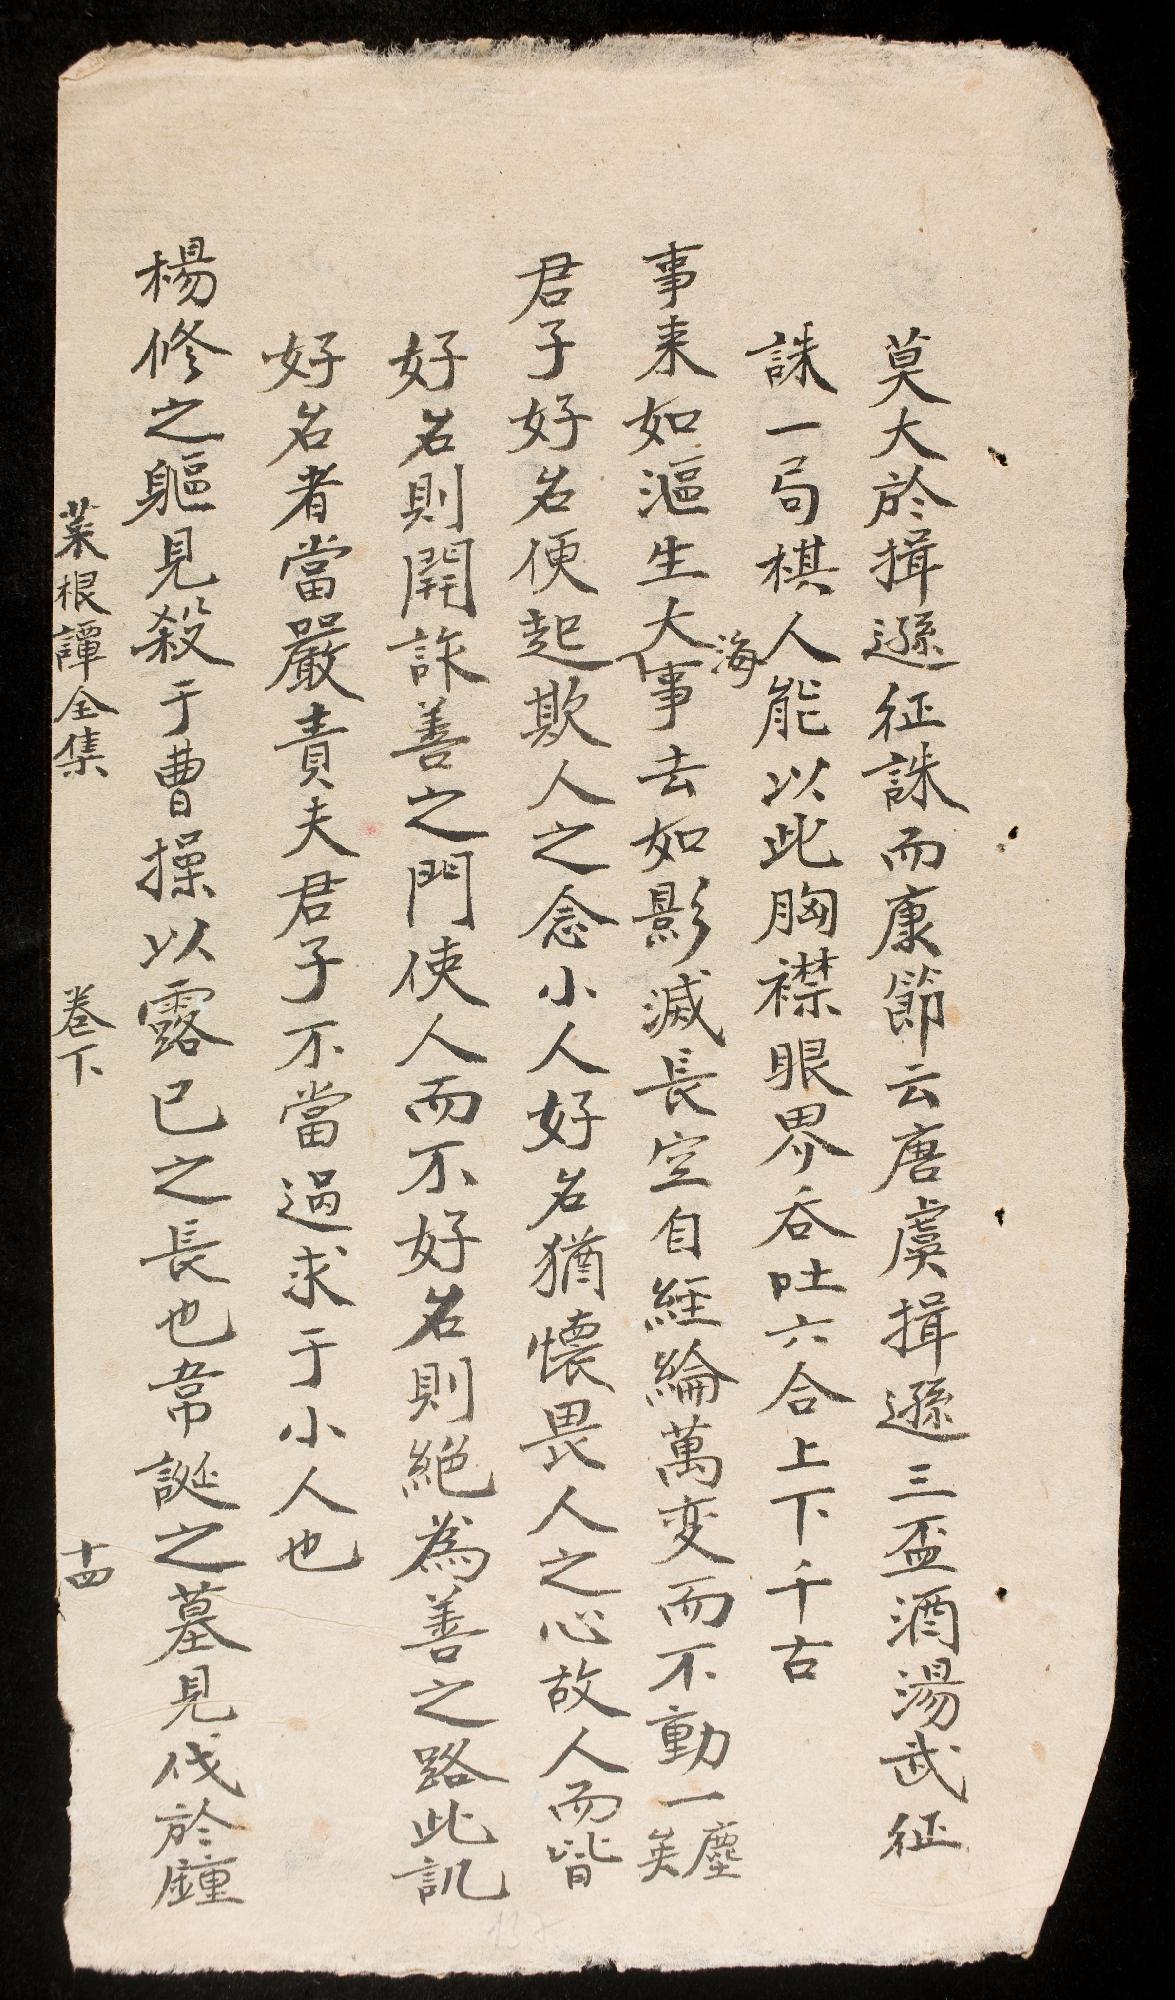 莫大於揖遜征誅而康節云唐虞揖遜三盃酒湯武征
誅一局棋人能以此胸襟眼界吞吐六合上下千古
事来如漚生大海事去如影滅長空自經綸萬变而不動一塵矣
君子好名便起欺人之念小人好名猶懷畏人之心故人而皆
好名則開詐善之門使人而不好名則絕為善之路此訊
好名者當嚴責夫君子不當過求于小人也
楊修之軀見殺于曹操以露己之長也韋誕之墓見伐於鍾
菜根譚全集 卷下 十四